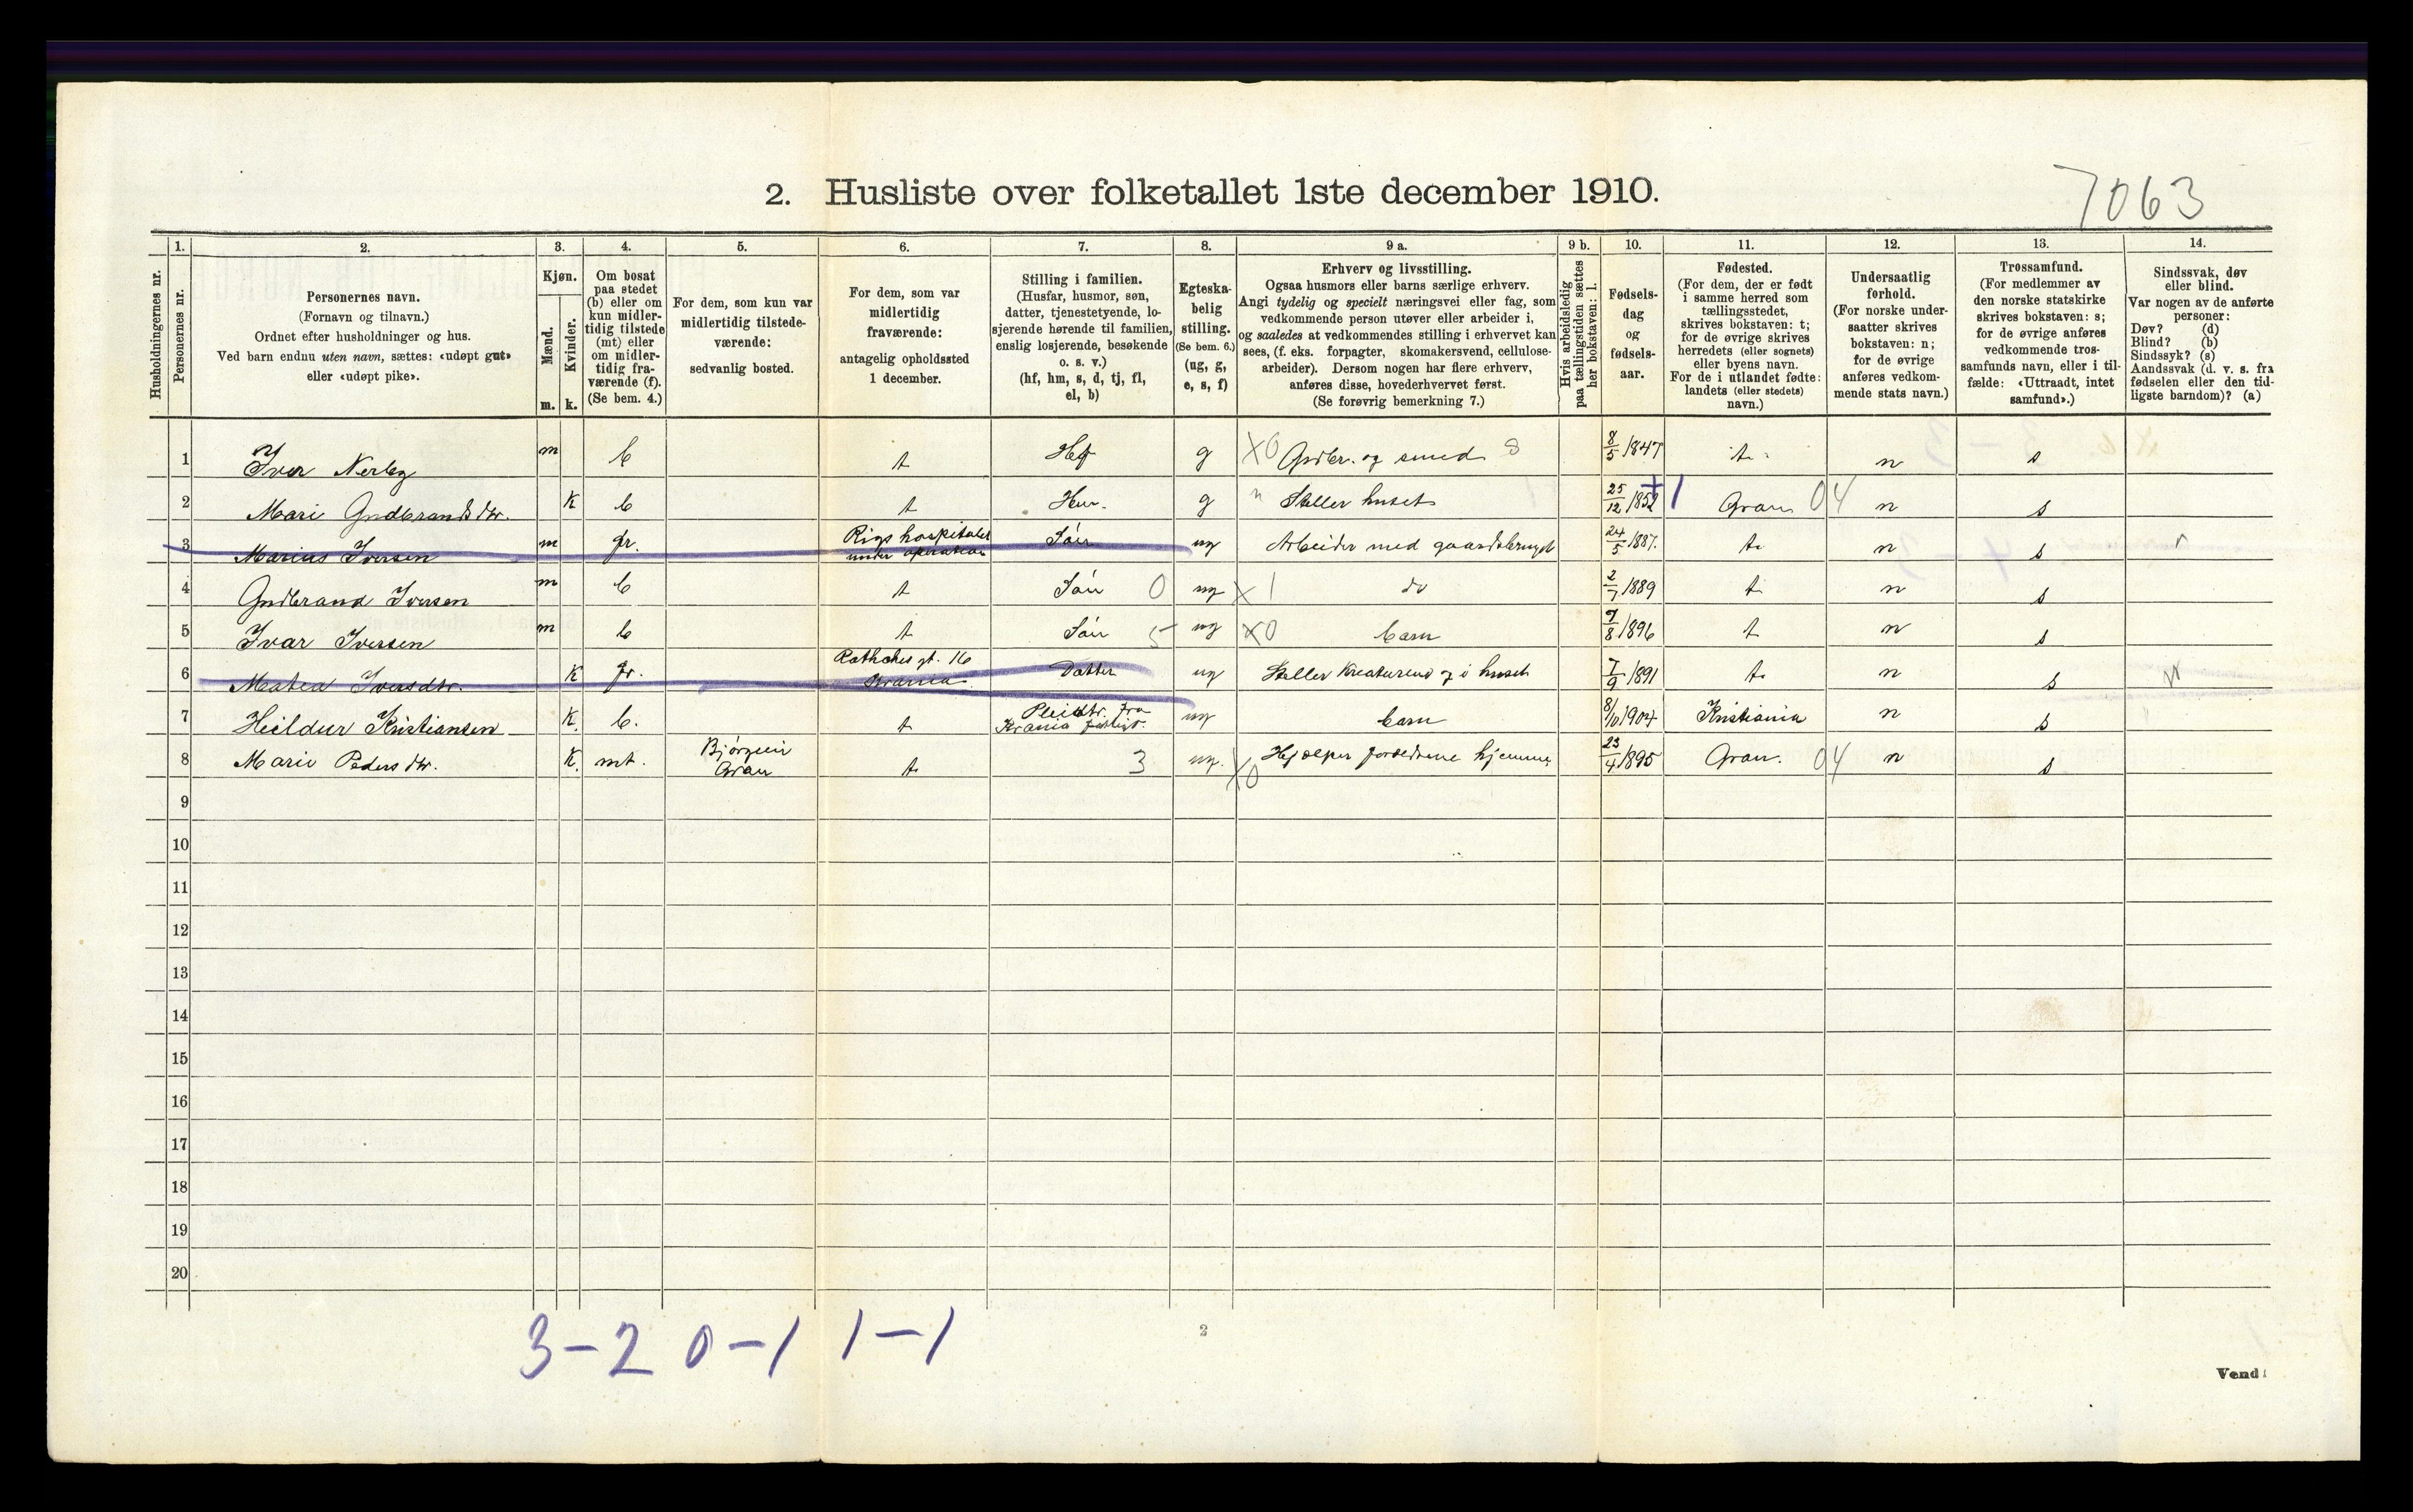 7063
2. Husliste over folketallet 1ste december 1910.
Husholdningernes nr.
1. Personernes nr.
2. Personernes navn.
(Fornavn og tilnavn.)
Ordnet efter husholdninger og hus.
Ved barn endnu uten navn, sættes: «udøpt gut»
eller «udøpt pike».
3. Kjøn.
Mænd. m.
Kvinder. k.
4. Om bosat
paa stedet
(b) eller om
kun midler-
tidig tilstede
(mt) eller
om midler-
tidig fra-
værende (f).
(Se bem. 4.)
5. For dem, som kun var
midlertidig tilstede-
værende:
sedvanlig bosted.
6. For dem, som var
midlertidig
fraværende:
antagelig opholdssted
1 december.
7. Stilling i familien.
(Husfar, husmor, søn,
datter, tjenestetyende, lo-
sjerende hørende til familien,
enslig losjerende, besøkende
o. s. v.)
(hf, hm, s, d, tj, fl,
el, b)
8. Egteska-
belig
stilling.
(Se bem. 6.)
(ug, g,
e, s, f)
9 a. Erhverv og livsstilling.
Ogsaa husmors eller barns særlige erhverv.
Angi tydelig og specielt næringsvei eller fag, som
vedkommende person utøver eller arbeider i,
og saaledes at vedkommendes stilling i erhvervet kan
sees, (f. eks. forpagter, skomakersvend, cellulose-
arbeider). Dersom nogen har flere erhverv,
anføres disse, hovederhvervet først.
(Se forøvrig bemerkning 7.)
9 b. Hvis arbeidsledig
paa tællingstiden sættes
her bokstaven: l.
10. Fødsels-
dag
og
fødsels-
aar.
11. Fødested.
(For dem, der er født
i samme herred som
tællingsstedet,
skrives bokstaven: t;
for de øvrige skrives
herredets (eller sognets)
eller byens navn.
For de i utlandet fødte:
landets (eller stedets)
navn.)
12. Undersaatlig
forhold.
(For norske under-
saatter skrives
bokstaven: n;
for de øvrige
anføres vedkom-
mende stats navn.)
13. Trossamfund.
(For medlemmer av
den norske statskirke
skrives bokstaven: s;
for de øvrige anføres
vedkommende tros-
samfunds navn, eller i til-
fælde: «Uttraadt, intet
samfund».)
14. Sindssvak, døv
eller blind.
Var nogen av de anførte
personer:
Døv? (d)
Blind? (b)
Sindssyk? (s)
Aandssvak (d. v. s. fra
fødselen eller den tid-
ligste barndom)? (a)
1 Iver Nerby m b t Hf g X0 Grdbr. og smed 8 8/5 1847 t. n s
2 Mari Gudbrandsdtr. K b t Hm. g Steller huset 25/12 1852 +1 Gran 04 n s
3 Marius Iversen m fr. Rigshospitalet under operation Sön ug Arbeider med gaardsbruget 24/5 1887. t. n s
4 Gudbrand Iversen m b t Sön 0 ug X 1 do 2/7 1889 t. n s
5 Ivar Iversen m b t Sön 5 ug X0 barn 9/8 1896 t n s
6 Matea Iversdtr. K fr. Rathches gt. 16 Krania Datter ug Steller Kreaturene og i huset 7/9 1891 t. n s
7 Heildur Kristiansen K. b. t Pleidtr. fra Krania ug barn 8/10 1904 Kristiania n s
8 Marie Pedersdtr. K. mt. Björgeeie Gran t. 3 ug. X0 Hjælper forældrene hjemme 23/4 1895 Gran. 04 n s
9
10
11
12
13
14
15
16
17
18
19
20
3-2 0-1 1-1
2
Vend!